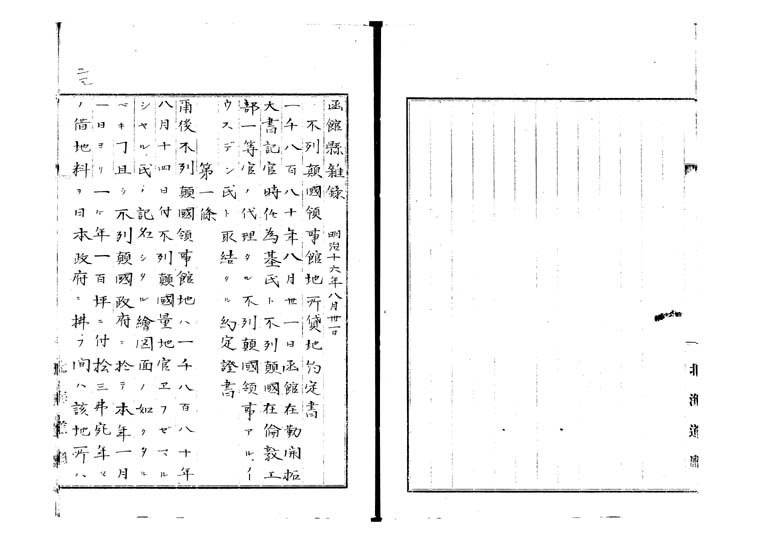 北海道廰
函館縣雜録　明治十六年八月卅一日
不列顛國領事館地所貸地約定書
一千八百八十年八月卅一日函館在勤開拓
大書記官時任為基氏ト不列顛國在倫敦工
部一等官ノ代理タル不列顛國領事アルイ
ウスデン氏ト取結タル約定證書
第一條
爾後不列顛國領事館地ハ一千八百八十年
八月十四日付不列顛國量地官エフゼマル
シヤル氏ノ記名シタル繪図面ノ如クタル
ベキヿ且ツ不列顛國政府ニ於テ本年一月
一日ヨリ一ケ年一百坪ニ付拾三弗宛年々
ノ借地料ヲ日本政府ニ拂フ間ハ該地所ハ